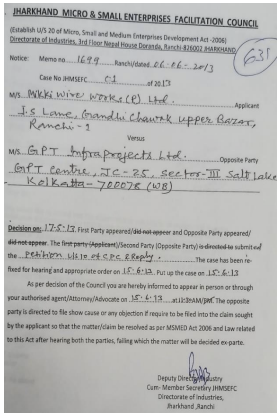 JHARKHAND MICRO & SMALL ENTERPRISES FACILITATION COUNCIL
(Establish U/S 20 of Micro, Small and Medium Enterprises Development Act -2006)
Directorate of Industries, 3rd Floor Nepal House Doranda, Ranchi-826002 JHARKHAND
635
Notice: Memo no 1699 Ranchi/dated 06-06-2013
Case No JHMSEFC 01 of 2013
M/S Mikki Wire Works (P) Ltd. Applicant
J.S Lane, Gandhi Chawk upper Bazar,
Ranchi-1
Versus
M/S GPT Infraprojects Ltd. Opposite Party
GPT Centre, JC-25, Sector-III Salt Lake
Kolkatta-700078 (WB)
Decision on: 17.5.13 First Party appeared/did not appear and Opposite Party appeared/
did not appear. The first party (Applicant)/Second Party (Opposite Party) is directed to submit
the Petition U/S 10 of CPC & Reply. The case has been re-
fixed for hearing and appropriate order on 15-6-13. Put up the case on 15-6-13
As per decision of the Council you are hereby informed to appear in person or through
your authorised agent/Attorney/Advocate on 15-6-13 at AM/PM. The opposite
party is directed to file show cause or any objection if require to be filed into the claim sought
by the applicant so that the matter/claim be resolved as per MSMED Act 2006 and Law related
to this Act after hearing both the parties, failing which the matter will be decided ex-parte.
Deputy Director Industry
Cum- Member Secretary JHMSEFC
Directorate of Industries,
Jharkhand ,Ranchi